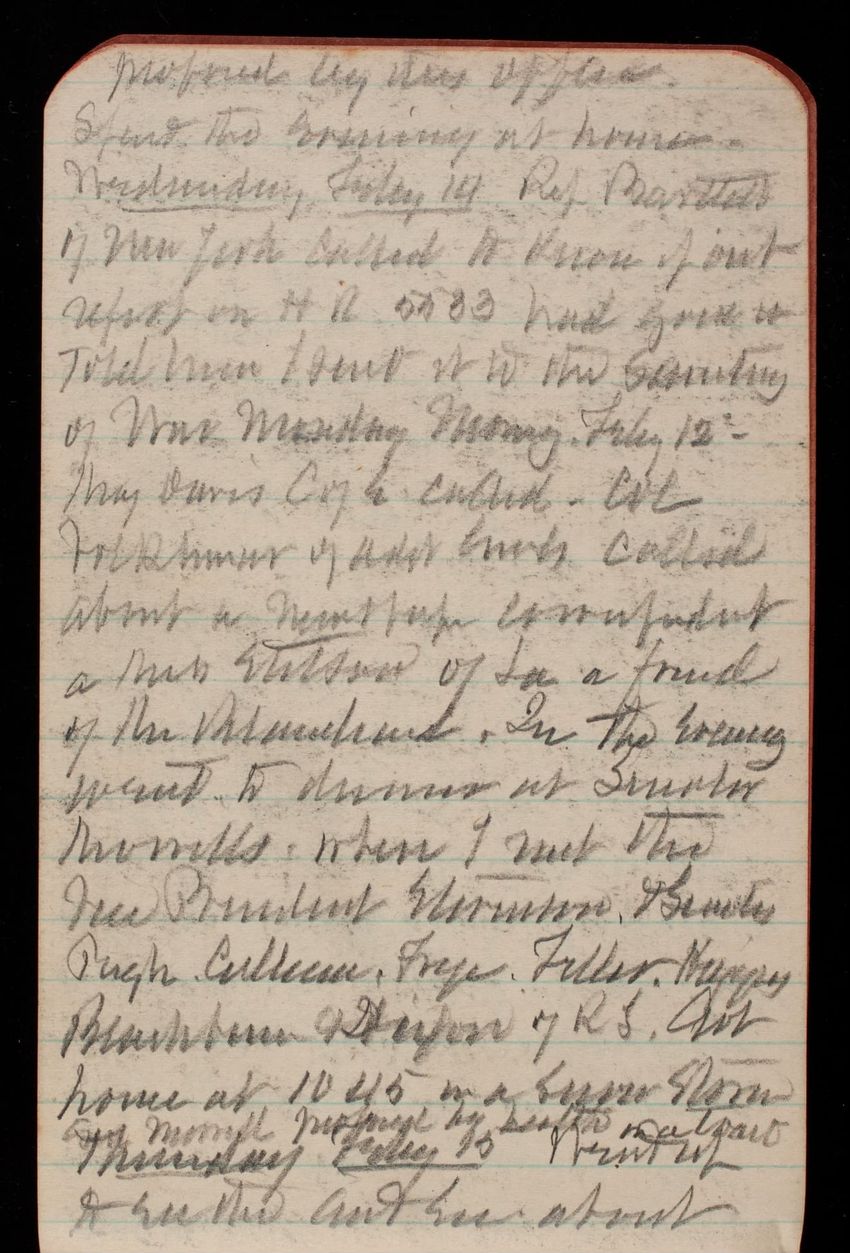 proposed by this office.
Spent the Evening at home.
Wednesday, Feby 14 Rep Bartlett
of New York called to know if our
report on H R 5533 had gone in
Told him I sent it to the Secretary
of War Monday Morng. Feby 12" -
Maj Davis Cof E called - Col
of Adet Genls called
about a Newspape correspondent
a Mr Stilson of La a friend
of Mr Blanchard. In the Evening
went to dinner at Senator
Morrills. when I met the
Vice President Stevenson. & Senators
Pugh. Cullum. Frye. Teller. Higgins
Blackburn & Dixon of R I. Got
home at 10 45 in a Snow Storm
Morrill proposed by health in a toast
Thursday Feby 15 Went up
to see the and see about